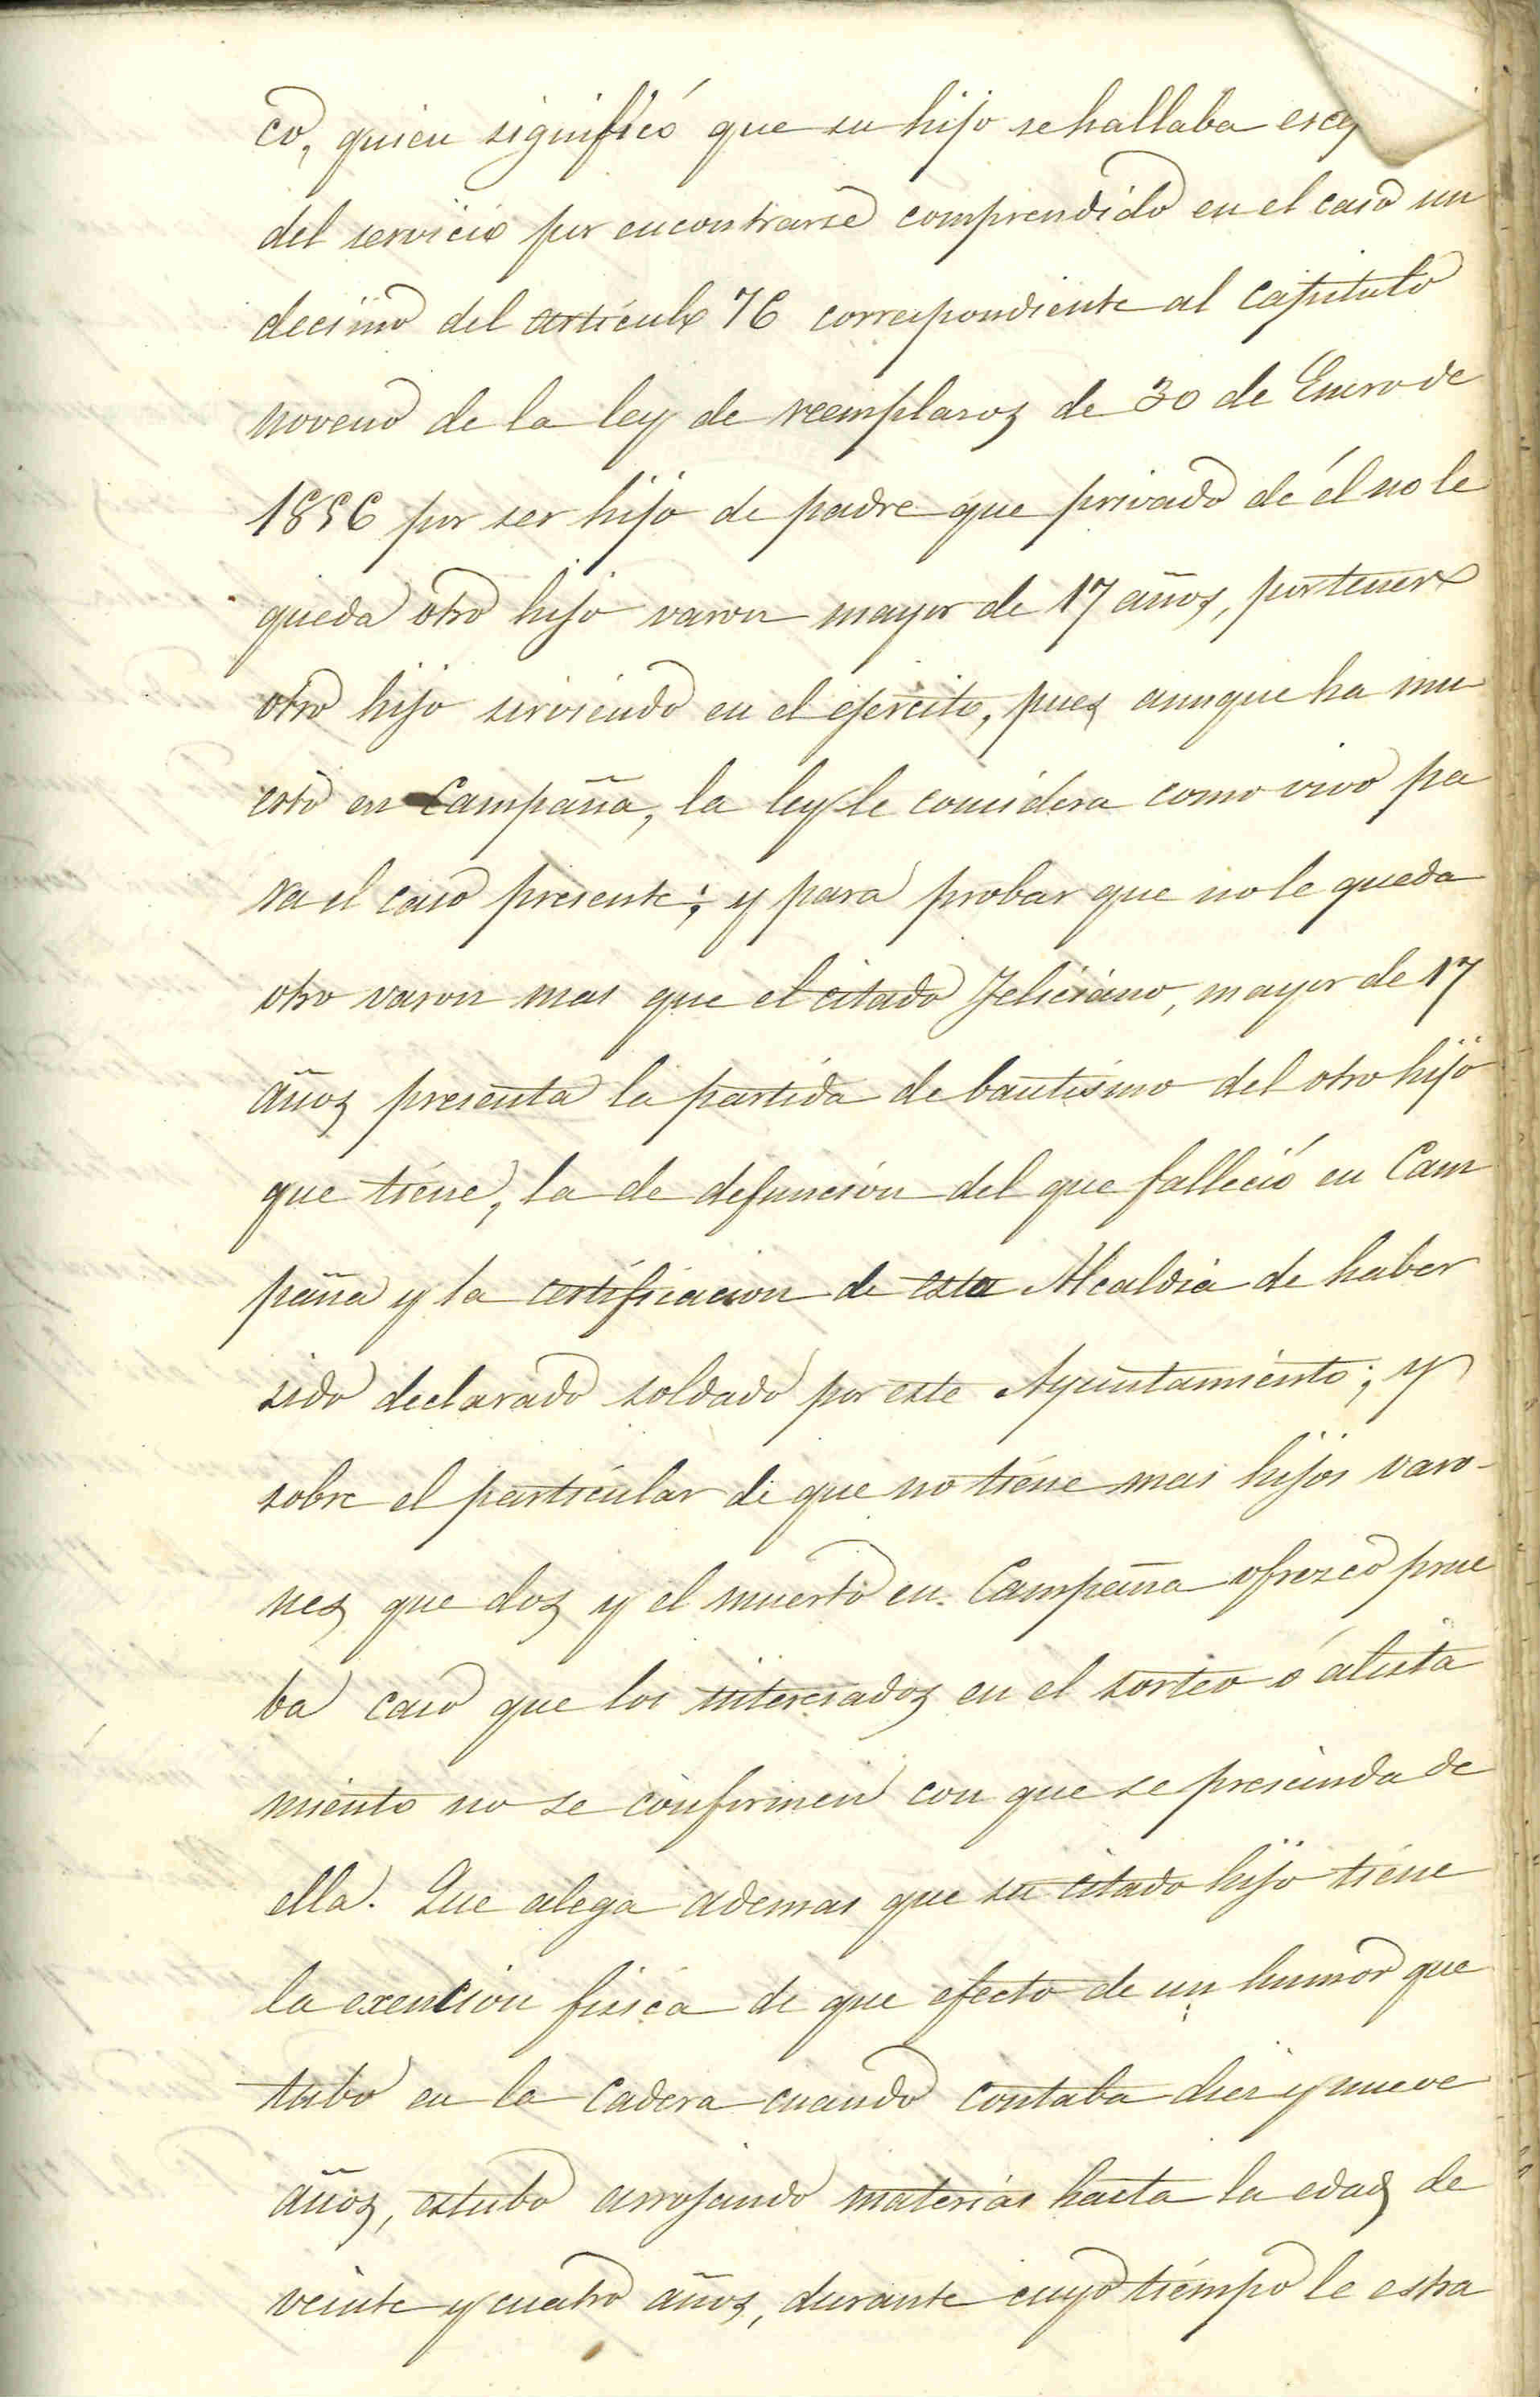 co, quien significó que su hijo se hallaba
del servicio por encontrarse comprendido en el caso un
decimo del articulo 76 correspondiente al capitulo
noveno de la ley de reemplasos de 30 de Enero de
1856 por ser hijo de padre que privado de él no le
queda otro hijo varon mayor de 17 años, por tener
otro hijo sirviendo en el ejercito, pues aunque ha mu
erto en Campaña, la ley le considera como vivo pa
ra el caso presente; y para probar que no le queda
otro varon mas que el citado Feliciano, mayor de 17
años presenta la partida de bautismo del otro hijo
que tiene, la de defunción del que falleció en Cam
paña y la certificacion de esta Alcaldia de haber
sido declarado soldado por este Ayuntamiento; y
sobre el particular de que no tiene mas hijos varo-
nes que dos y el muerto en Campaña ofresco prue
ba caso que los interesados en el sorteo ó alista
miento no se conformen con que se prescinda de
ella. Que alega ademas que su citado hijo tiene
la exencion fisica de que efecto de un humor que
tubo en la cadera cuando contaba diez y nueve
años, estubo arrojando materias hasta la edad de
veinte y cuatro años, durante cuyo tiempo le estra